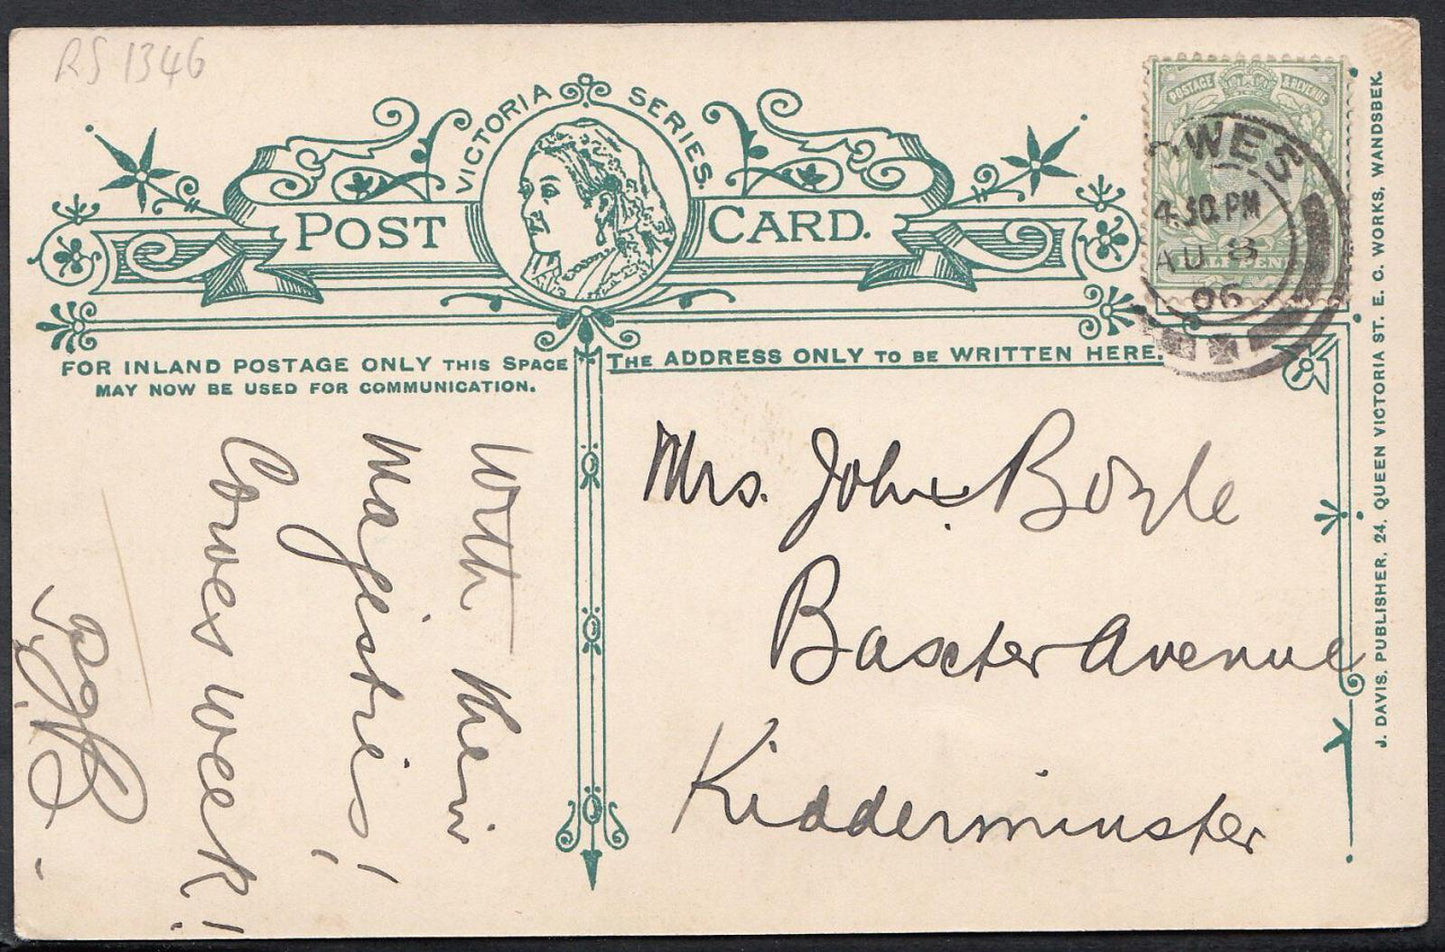 RS 1346
VICTORIA SERIES.
POST CARD.
POSTAGE & REVENUE
OWES
4.30.PM
AU 8
06
FOR INLAND POSTAGE ONLY THIS SPACE
MAY NOW BE USED FOR COMMUNICATION.
THE ADDRESS ONLY TO BE WRITTEN HERE.
With their
Magesties!
Cowes week!
Mrs. John Boyle
Baxter Avenue
Kidderminster
J. DAVIS, PUBLISHER, 24, QUEEN VICTORIA ST. E. C. WORKS, WANDSBEK.